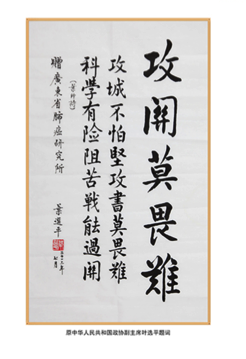 攻關莫畏難
攻城不怕堅攻書莫畏難
科學有险阻苦戰能過關
（葉帅詩）
贈廣東省肺癌研究所
葉選平
原中华人民共和国政协副主席叶选平题词